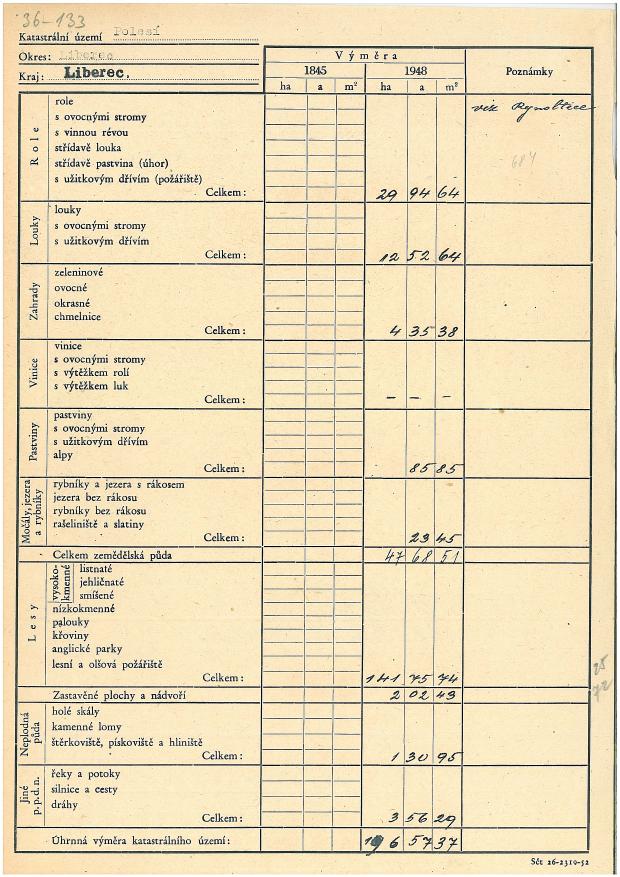 36-133
Katastrální území Polesí
Okres: Liberec
Kraj: Liberec.
Výměra
1845 1948 Poznámky
ha a m² ha a m²
Role
role
s ovocnými stromy
s vinnou révou
střídavě louka
střídavě pastvina (úhor)
s užitkovým dřívím (požářiště)
Celkem: 29 94 64
viz Rynoltice
684
Louky
louky
s ovocnými stromy
s užitkovým dřívím
Celkem: 12 52 64
Zahrady
zeleninové
ovocné
okrasné
chmelnice
Celkem: 4 35 38
Vinice
vinice
s ovocnými stromy
s výtěžkem rolí
s výtěžkem luk
Celkem: – – –
Pastviny
pastviny
s ovocnými stromy
s užitkovým dřívím
alpy
Celkem: 85 85
Močály, jezera a rybníky
rybníky a jezera s rákosem
jezera bez rákosu
rybníky bez rákosu
rašeliniště a slatiny
Celkem: 23 45
Celkem zemědělská půda 47 68 51
Lesy
vysoko-kmenné
listnaté
jehličnaté
smíšené
nízkokmenné
palouky
křoviny
anglické parky
lesní a olšová požářiště
Celkem: 141 75 74
25
72
Zastavěné plochy a nádvoří 2 02 43
Neplodná půda
holé skály
kamenné lomy
štěrkoviště, pískoviště a hliniště
Celkem: 1 30 95
Jiné p.p.d.n.
řeky a potoky
silnice a cesty
dráhy
Celkem: 3 56 29
Úhrnná výměra katastrálního území: 196 57 37
Sčt 26-2319-52